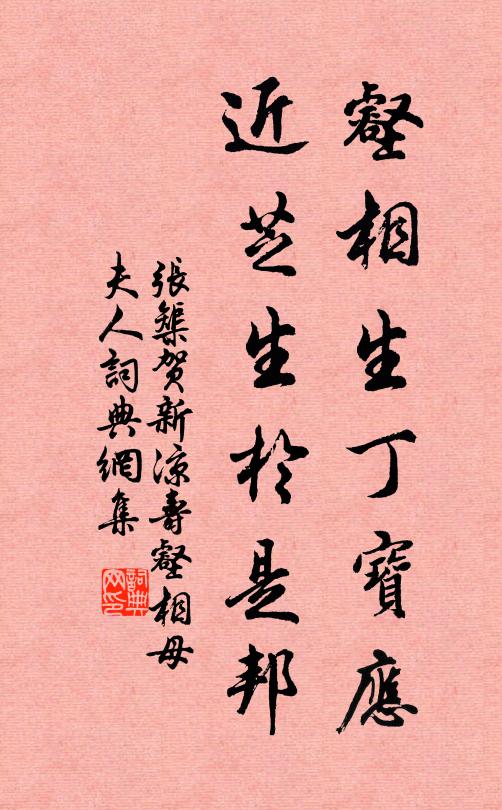 壑相生丁寶應
近芝生於是邦
張榘賀新涼壽壑相母
夫人詞典網集
詞典
网印